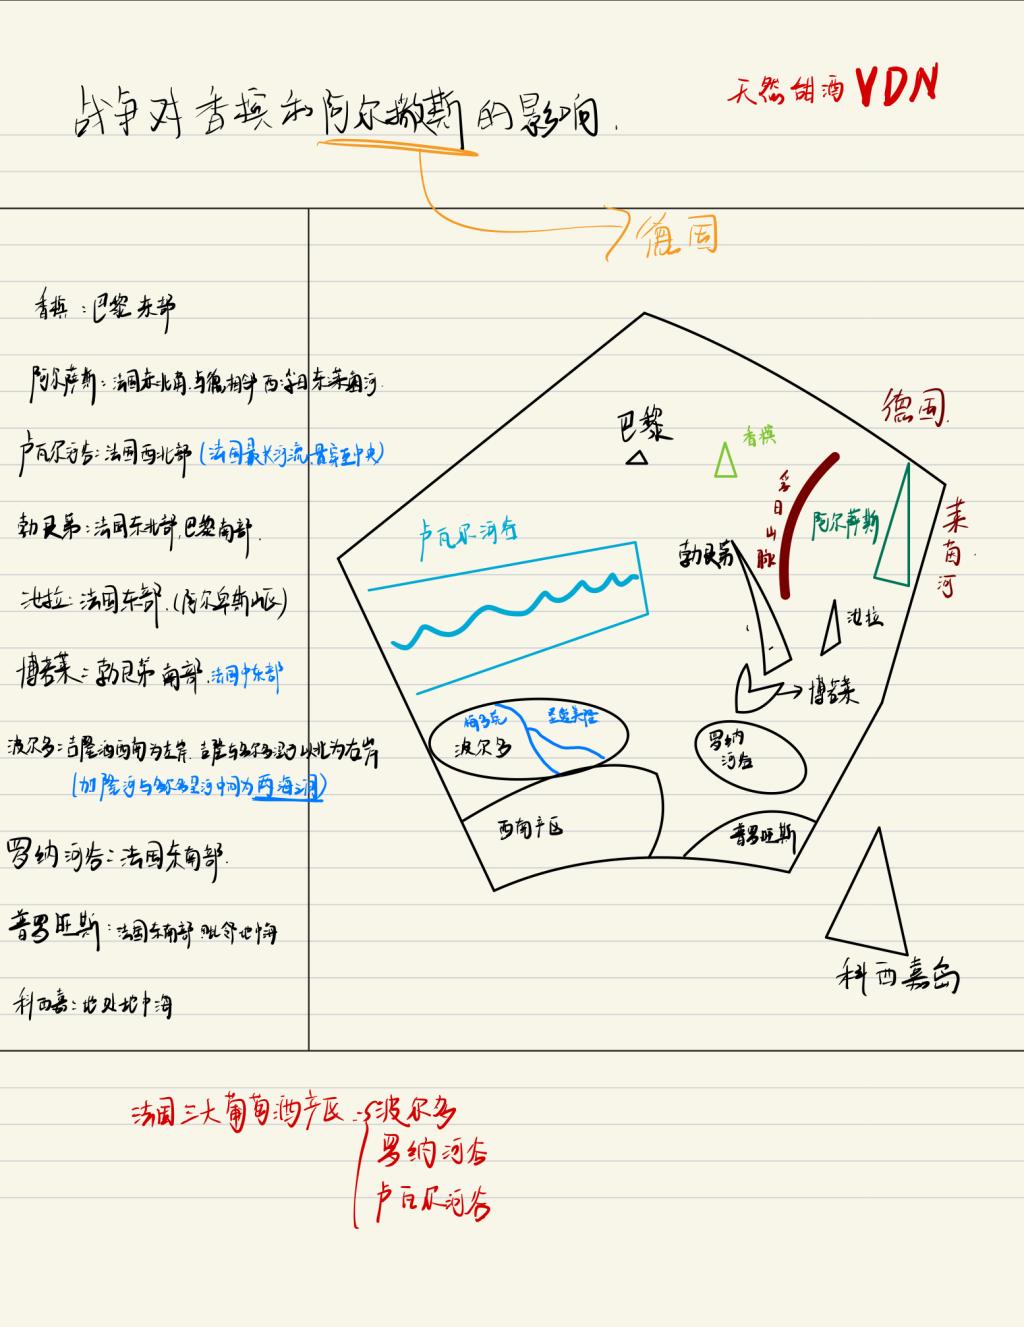 天然甜酒 VDN
战争对香槟和阿尔撒斯的影响.
德国
香槟:巴黎东部
阿尔萨斯:法国东北角,与德相毕 西:孚日东莱茵河
卢瓦尔河谷:法国西北部(法国最长河流,贯穿至中央)
勃艮第:法国东北部,巴黎南部.
汝拉:法国东部.(阿尔卑斯山区)
博若莱:勃艮第南部.法国中东部
波尔多:吉隆河西南为左岸.
(加隆河与多尔多涅河中间为两海间)
罗纳河谷:法国东南部.
普罗旺斯:法国东南部 毗邻地中海
科西嘉:地处地中海
巴黎
香槟
德国.
孚日山脉
阿尔萨斯
莱茵河
卢瓦尔河谷
勃艮第
汝拉
博若莱
波尔多
罗纳河谷
西南产区
普罗旺斯
科西嘉岛
法国三大葡萄酒产区:波尔多
罗纳河谷
卢瓦尔河谷